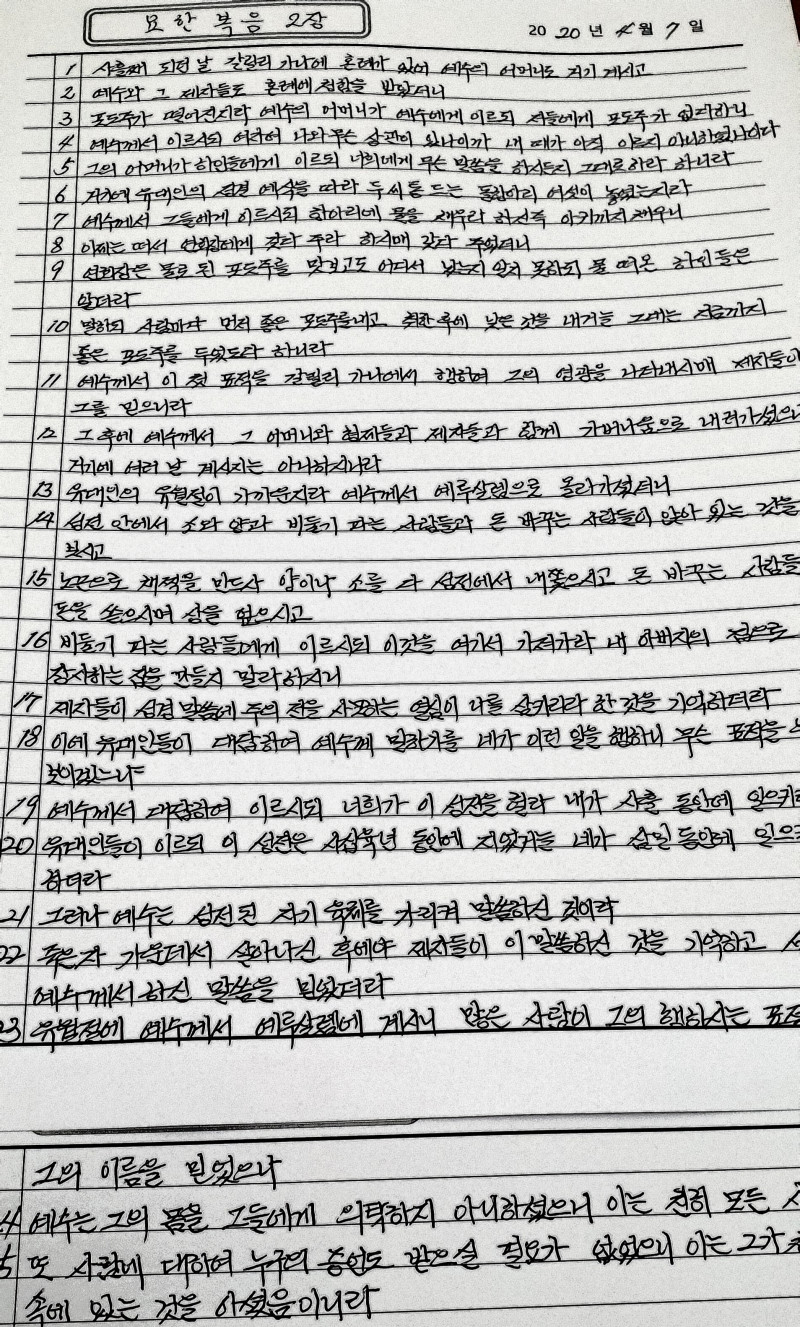 요한복음 2장
2020년 4월 7일
1 사흘째 되던 날 갈릴리 가나에 혼례가 있어 예수의 어머니도 거기 계시고
2 예수와 그 제자들도 혼례에 청함을 받았더니
3 포도주가 떨어진지라 예수의 어머니가 예수에게 이르되 저들에게 포도주가 없다하니
4 예수께서 이르시되 여자여 나와 무슨 상관이 있나이까 내 때가 아직 이르지 아니하였나이다
5 그의 어머니가 하인들에게 이르되 너희에게 무슨 말씀을 하시든지 그대로 하라 하니라
6 거기에 유대인의 정결 예식을 따라 두세 통 드는 돌항아리 여섯이 놓였는지라
7 예수께서 그들에게 이르시되 항아리에 물을 채우라 하신즉 아귀까지 채우니
8 이제는 떠서 연회장에게 갖다 주라 하시매 갖다 주었더니
9 연회장은 물로 된 포도주를 맛보고도 어디서 났는지 알지 못하되 물 떠온 하인들은
알더라
10 말하되 사람마다 먼저 좋은 포도주를 내고 취한 후에 낮은 것을 내거늘 그대는 지금까지
좋은 포도주를 두었도다 하니라
11 예수께서 이 첫 표적을 갈릴리 가나에서 행하여 그의 영광을 나타내시매 제자들이
그를 믿으니라
12 그 후에 예수께서 그 어머니와 형제들과 제자들과 함께 가버나움으로 내려가셨으나
거기에 여러 날 계시지는 아니하시니라
13 유대인의 유월절이 가까운지라 예수께서 예루살렘으로 올라가셨더니
14 성전 안에서 소와 양과 비둘기 파는 사람들과 돈 바꾸는 사람들이 앉아 있는 것을
보시고
15 노끈으로 채찍을 만드사 양이나 소를 다 성전에서 내쫓으시고 돈 바꾸는 사람들
돈을 쏟으시며 상을 엎으시고
16 비둘기 파는 사람들에게 이르시되 이것을 여기서 가져가라 내 아버지의 집으로
장사하는 집을 만들지 말라 하시니
17 제자들이 성경 말씀에 주의 전을 사모하는 열심이 나를 삼키리라 한 것을 기억하더라
18 이에 유대인들이 대답하여 예수께 말하기를 네가 이런 일을 행하니 무슨 표적을
보이겠느냐
19 예수께서 대답하여 이르시되 너희가 이 성전을 헐라 내가 사흘 동안에 일으키
20 유대인들이 이르되 이 성전은 사십육년 동안에 지었거늘 네가 삼일 동안에 일으
하더라
21 그러나 예수는 성전된 자기 육체를 가리켜 말씀하신 것이라
22 죽은자 가운데서 살아나신 후에야 제자들이 이 말씀하신 것을 기억하고
예수께서 하신 말씀을 믿었더라
23 유월절에 예수께서 예루살렘에 계시니 많은 사람이 그의 행하시는 표적
그의 이름을 믿었으나
4 예수는 그의 몸을 그들에게 의탁하지 아니하셨으니 이는 친히 모든
5 또 사람에 대하여 누구의 증언도 받으실 필요가 없었으니 이는 그가
속에 있는 것을 아셨음이니라